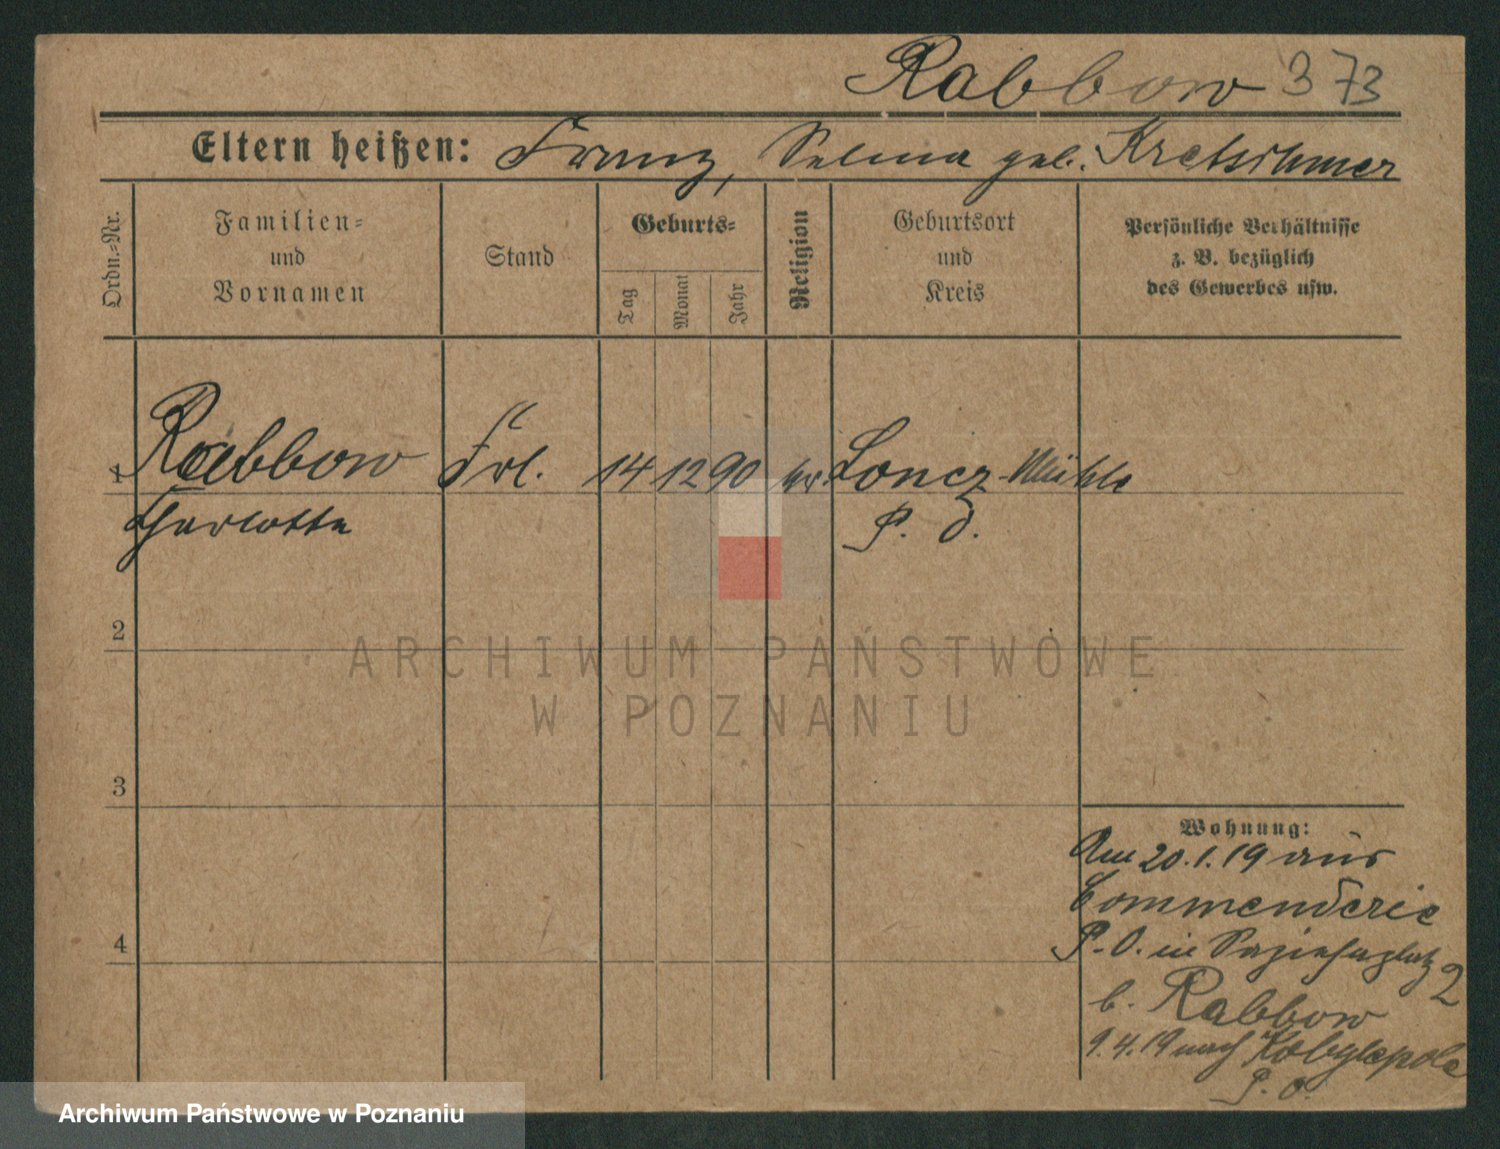 Rabbow 373
Eltern heißen: Franz, Selma geb. Kretschmer
Ordn.-Nr.
Familien-
und
Vornamen
Stand
Geburts-
Tag
Monat
Jahr
Religion
Geburtsort
und
Kreis
Persönliche Verhältnisse
z. B. bezüglich
des Gewerbes usw.
1 Rabbow Frl. 14 12 90 Loncz-Mühle
Charlotte P. O.
2
ARCHIWUM PAŃSTWOWE
W POZNANIU
3
Wohnung:
Am 20.1.19 aus
Commenderie
P. O. in 2
b. Rabbow
9.4.19 nach Kobylepole
P. O.
4
Archiwum Państwowe w Poznaniu